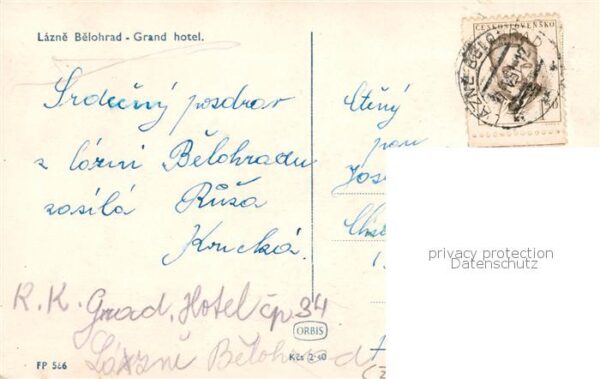 Lázně Bělohrad - Grand hotel.
ČESKOSLOVENSKO
LÁZNĚ BĚLOHRAD
Srdečný pozdrav
z lázní Bělohradu
zasílá Růža
Krucká.
Ctěný
pan
R. K. Grad. Hotel čp. 34
Lázně Bělohrad
ORBIS
Kčs 2·40
FP 566
privacy protection
Datenschutz